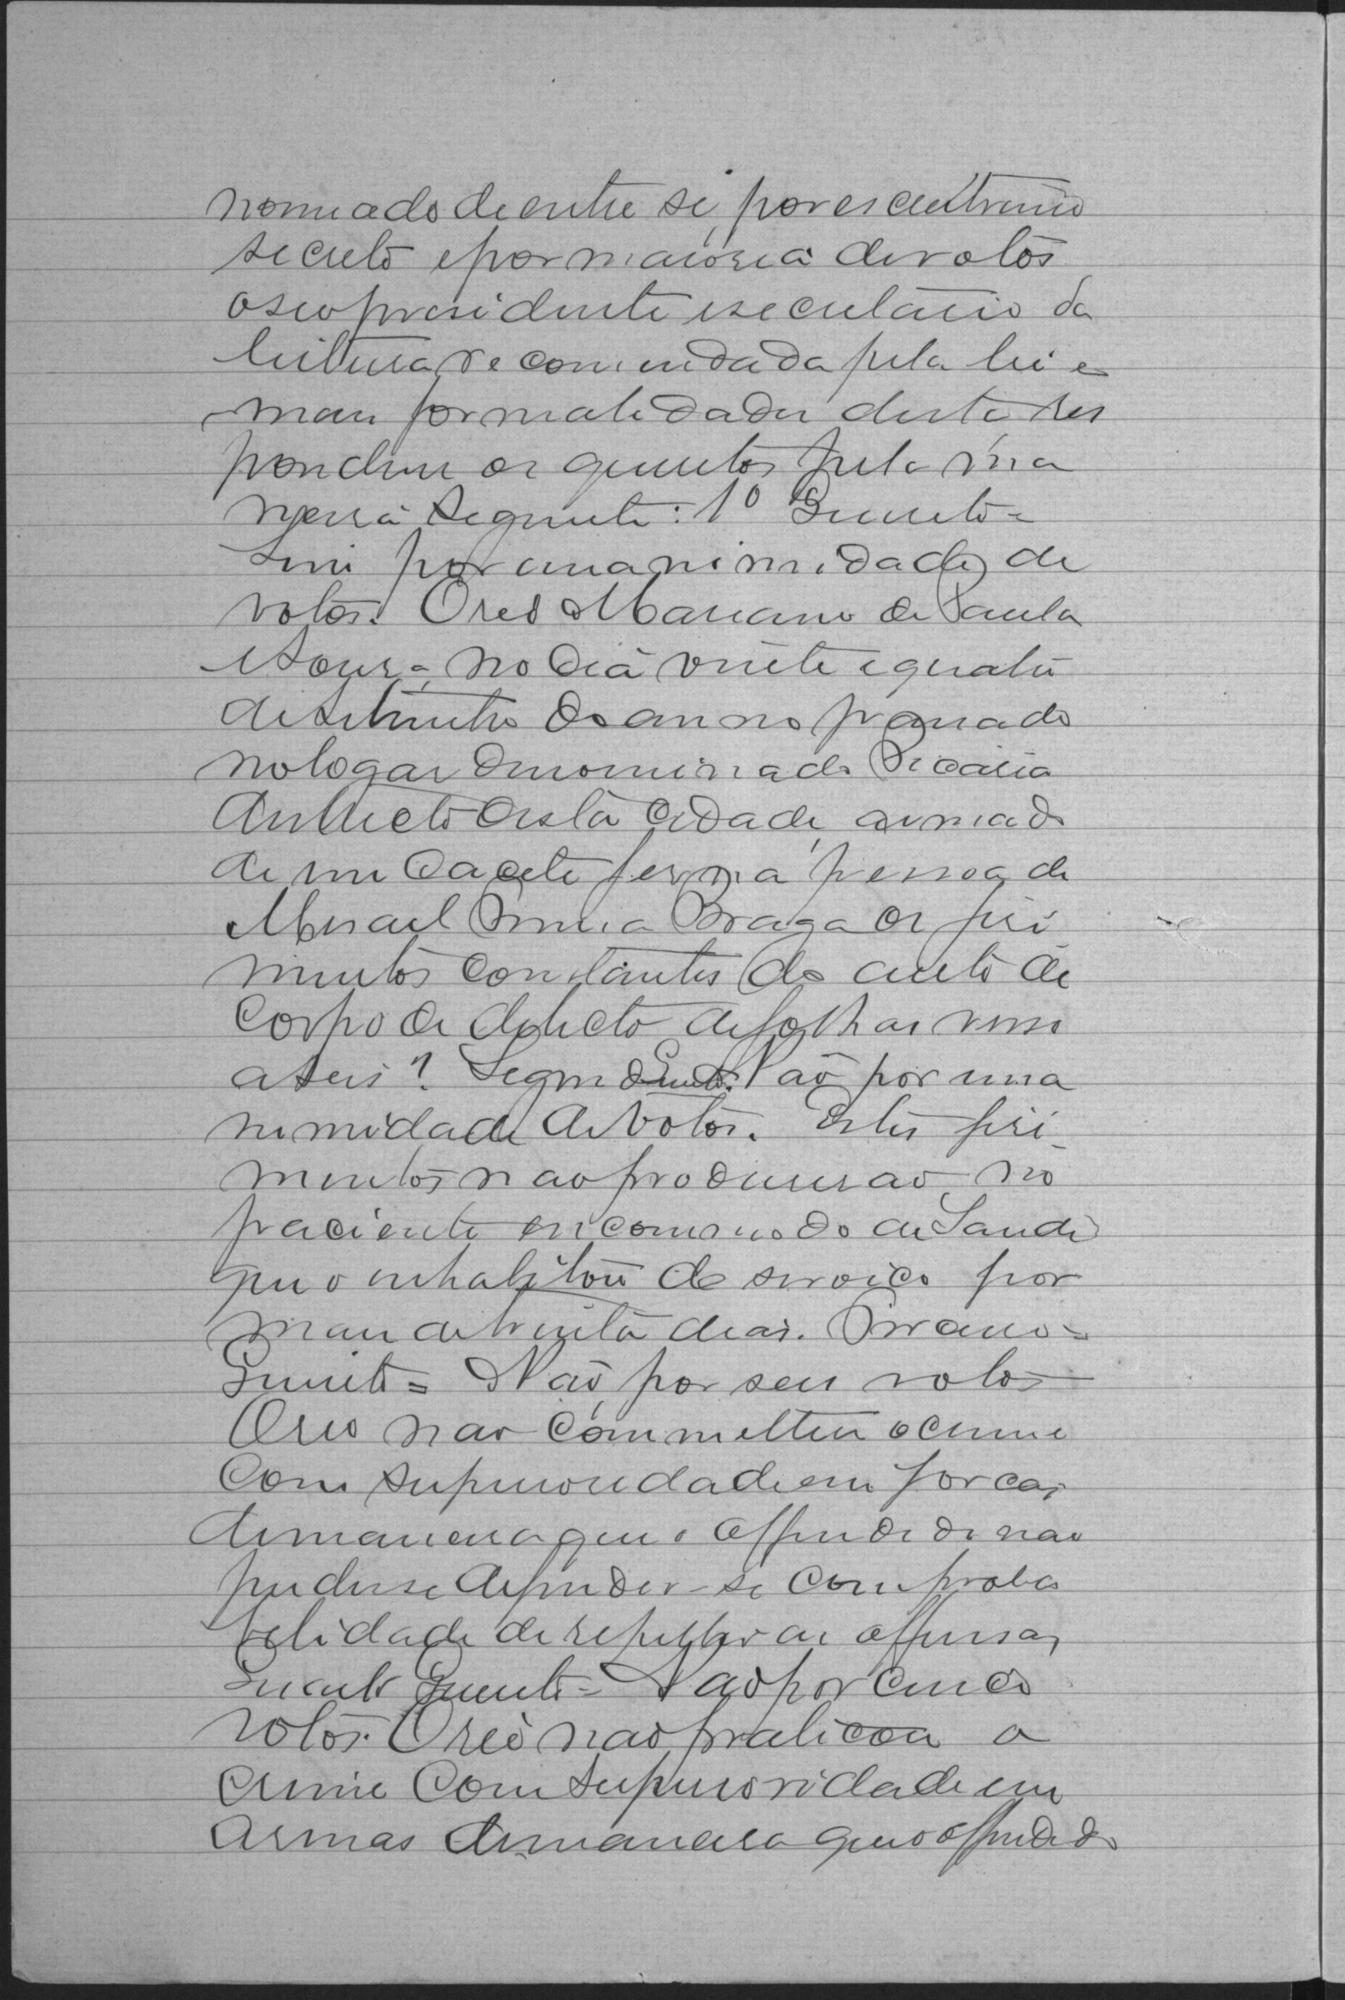 nomeado de entre si, por escrutinio
secreto e por maioria de votos
o seo presidente e secretario da
leitura recomendada pela lei e
mais formalidades desta res
pondeu os quesitos pela ma
neira seguinte: 1º Quesito =
Sim por unanimidade de
votos. O reo Mariano de Paula
e Sousa, no dia vinte e quatro
de Setembro do anno passado
no logar denominado
districto desta cidade, armado
de um cacete fez na pessoa de
Misael Braga os feri
mentos constantes do auto de
corpo de delicto de folhas
a seis? Segundo Quesito: Não por una
nimidade de votos. Estes feri
mentos não produsirão no
paciente encommodo de Saude
que o inhabilitou de serviço por
mais de trinta dias. Terceiro =
Quesito = Não, por seis votos
O reo não commetteu o crime
com superioridade em forças,
de maneira que o offendido não
pudesse defender-se com proba
bilidade de repellir as offensas,
Quarto Quesito = Não por cinco
votos. O reo não praticou o
crime com superioridade em
armas de maneira que o offendido